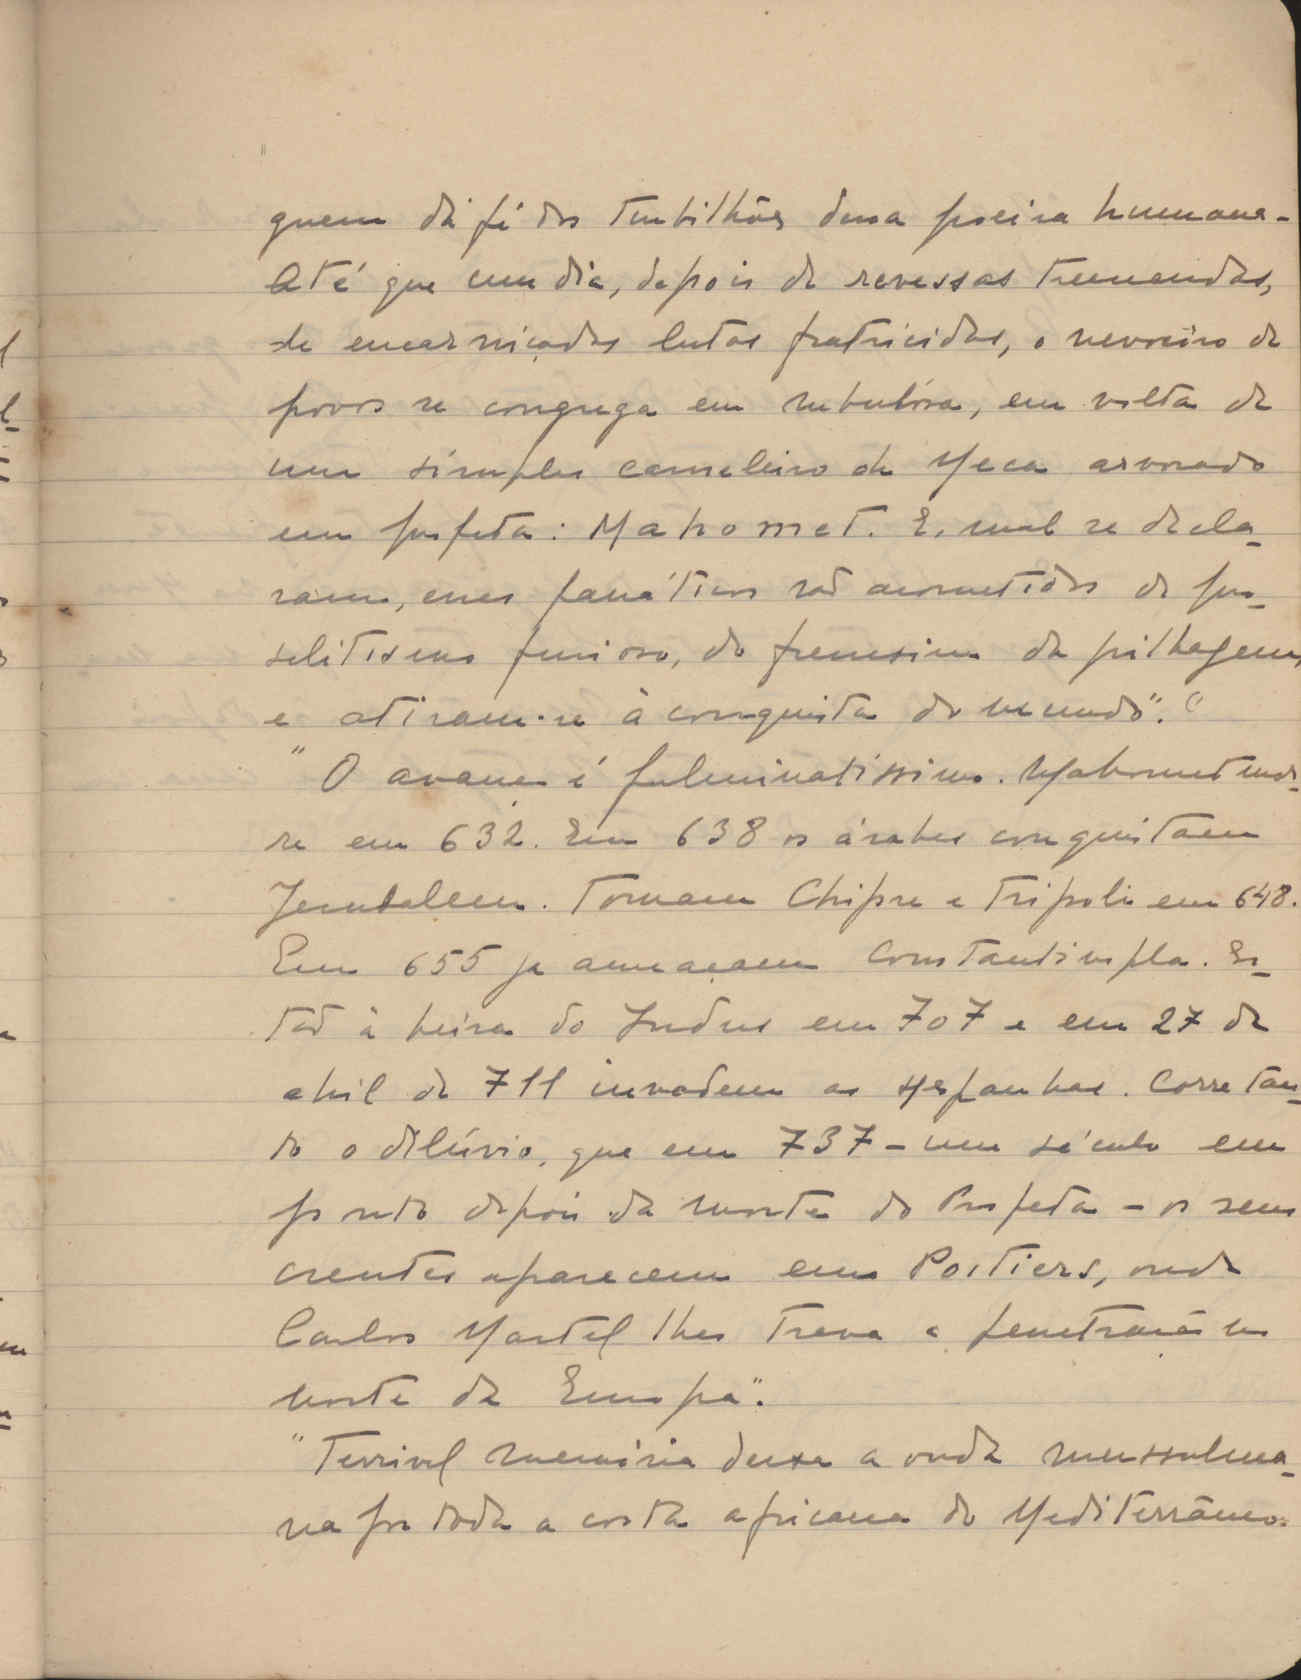 guem dá fé dos turbilhões dessa poeira humana.
Até que um dia, depois de revessas tremendas,
de encarniçadas lutas fratricidas, o nevoeiro de
povos se congrega em nebulósa, em volta de
um simples cameleiro de Meca arvorado
em profeta: Mahomet. E, mal se decla-
ram, esses fanáticos são acometidos de pro-
selitismo furioso, do frenesim da pilhagem,
e atiram-se à conquista do mundo".
"O avanço é fulminatíssimo. Mahomet mor-
re em 632. Em 638 os árabes conquistam
Jerusalem. Tomam Chipre e Tripoli em 648.
Em 655 já ameaçam Constantinopla. Es-
tão à beira do Indus em 707 e em 27 de
abril de 711 invadem as Hespanhas. Corre tan-
to o dilúvio, que em 737 - um século em
ponto depois da morte do Profeta - os seus
crentes aparecem em Poitiers, onde
Carlos Martel lhes trava a penetração no
norte da Europa".
"Terrivel memória deixa a onda mussulma-
na por toda a costa africana do Mediterrâneo.